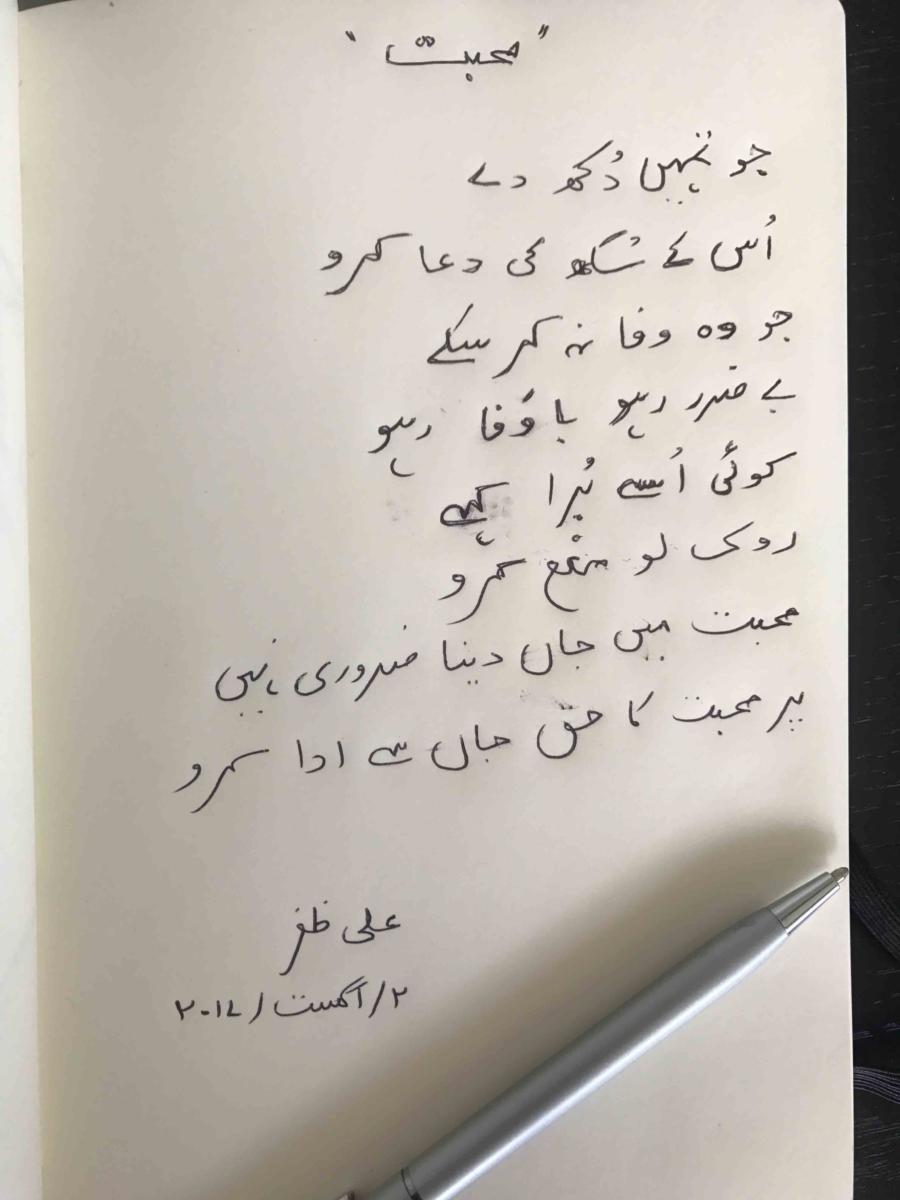 "محبت"
جو تمہیں دُکھ دے
اُس کے سُکھ کی دعا کرو
جو وہ وفا نہ کر سکے
بے ضرر رہو با وَفا رہو
کوئی اُسے بُرا کہے
روک لو منع کرو
محبت میں جاں دینا ضروری نہیں
پر محبت کا حق جاں سے ادا کرو
علی ظفر
۲/اگست/۲۰۱۷